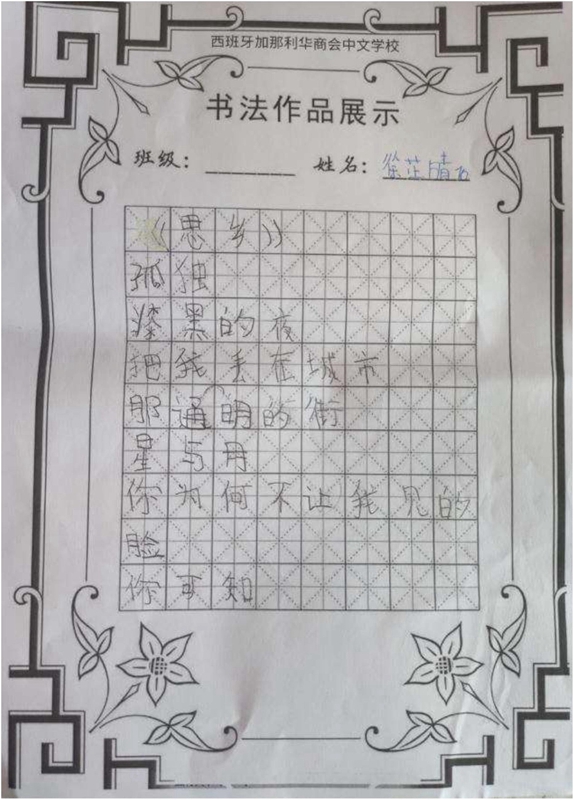 西班牙加那利华商会中文学校
书法作品展示
班级： 姓名：徐芷晴
《思乡》
孤独
漆黑的夜
把我丢在城市
那通明的街
星与月
你为何不让我见的
脸
你可知